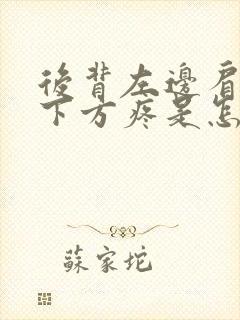 後背左邊肩
下方疼是怎
蘇家坨